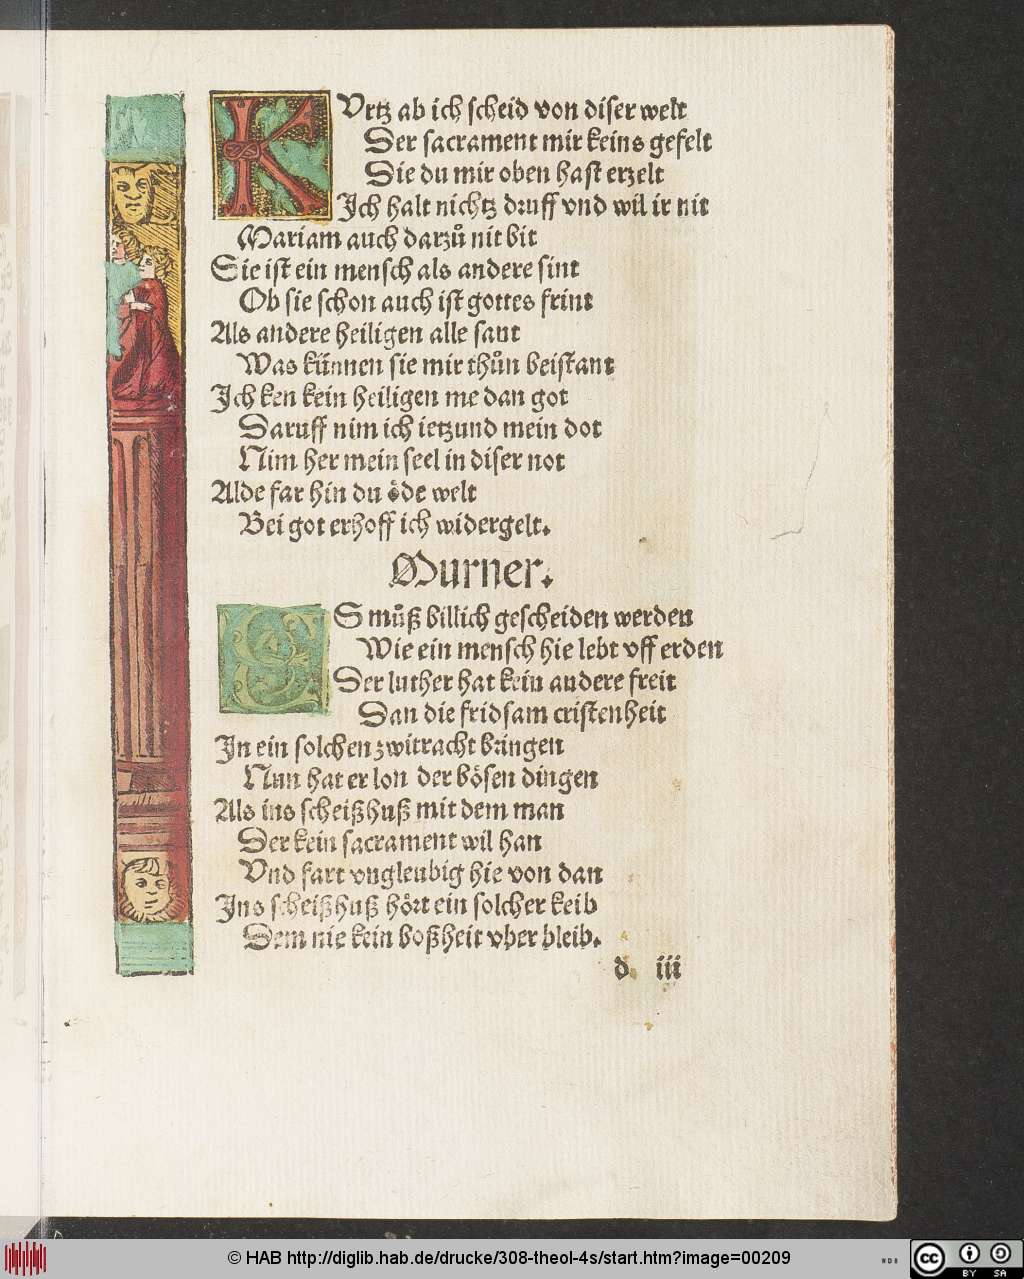 KVrtz ab ich scheid von diser welt
Der sacrament mir keins gefelt
Die du mir oben hast erzelt
Ich halt nichtz druff vnd wil ir nit
Mariam auch darzů nit bit
Sie ist ein mensch als andere sint
Ob sie schon auch ist gottes frint
Als andere heiligen alle sant
Was künnen sie mir thůn beistant
Ich ken kein heiligen me dan got
Daruff nim ich ietzund mein dot
Nim her mein seel in diser not
Alde far hin du öde welt
Bei got erhoff ich widergelt.
Murner.
ES můß billich gescheiden werden
Wie ein mensch hie lebt vff erden
Der luther hat kein andere freit
Dan die fridsam cristenheit
In ein solchen zwitracht bringen
Nun hat er lon der bösen dingen
Als ins scheißhuß mit dem man
Der kein sacrament wil han
Vnd fart vngleubig hie von dan
Ins scheißhuß hört ein solcher keib
Dem nie kein boßheit vber bleib.
d iii
© HAB http://diglib.hab.de/drucke/308-theol-4s/start.htm?image=00209
WDB
cc BY SA